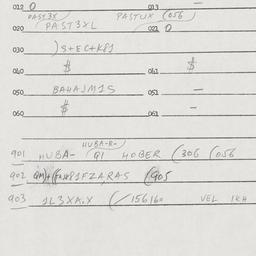 012 0 013 –
PAST3X PASTUX (056
020 PAST3XL 021 0
030 )S+EC+K81
040 $ 041 $
050 BAHAJM1S 051 –
060 $ 061 –
HUBA-R-
901 HUBA- Q1 HOBER (306 (056
902 (905
903 1L3XA.X (/15616 VEL 1KH